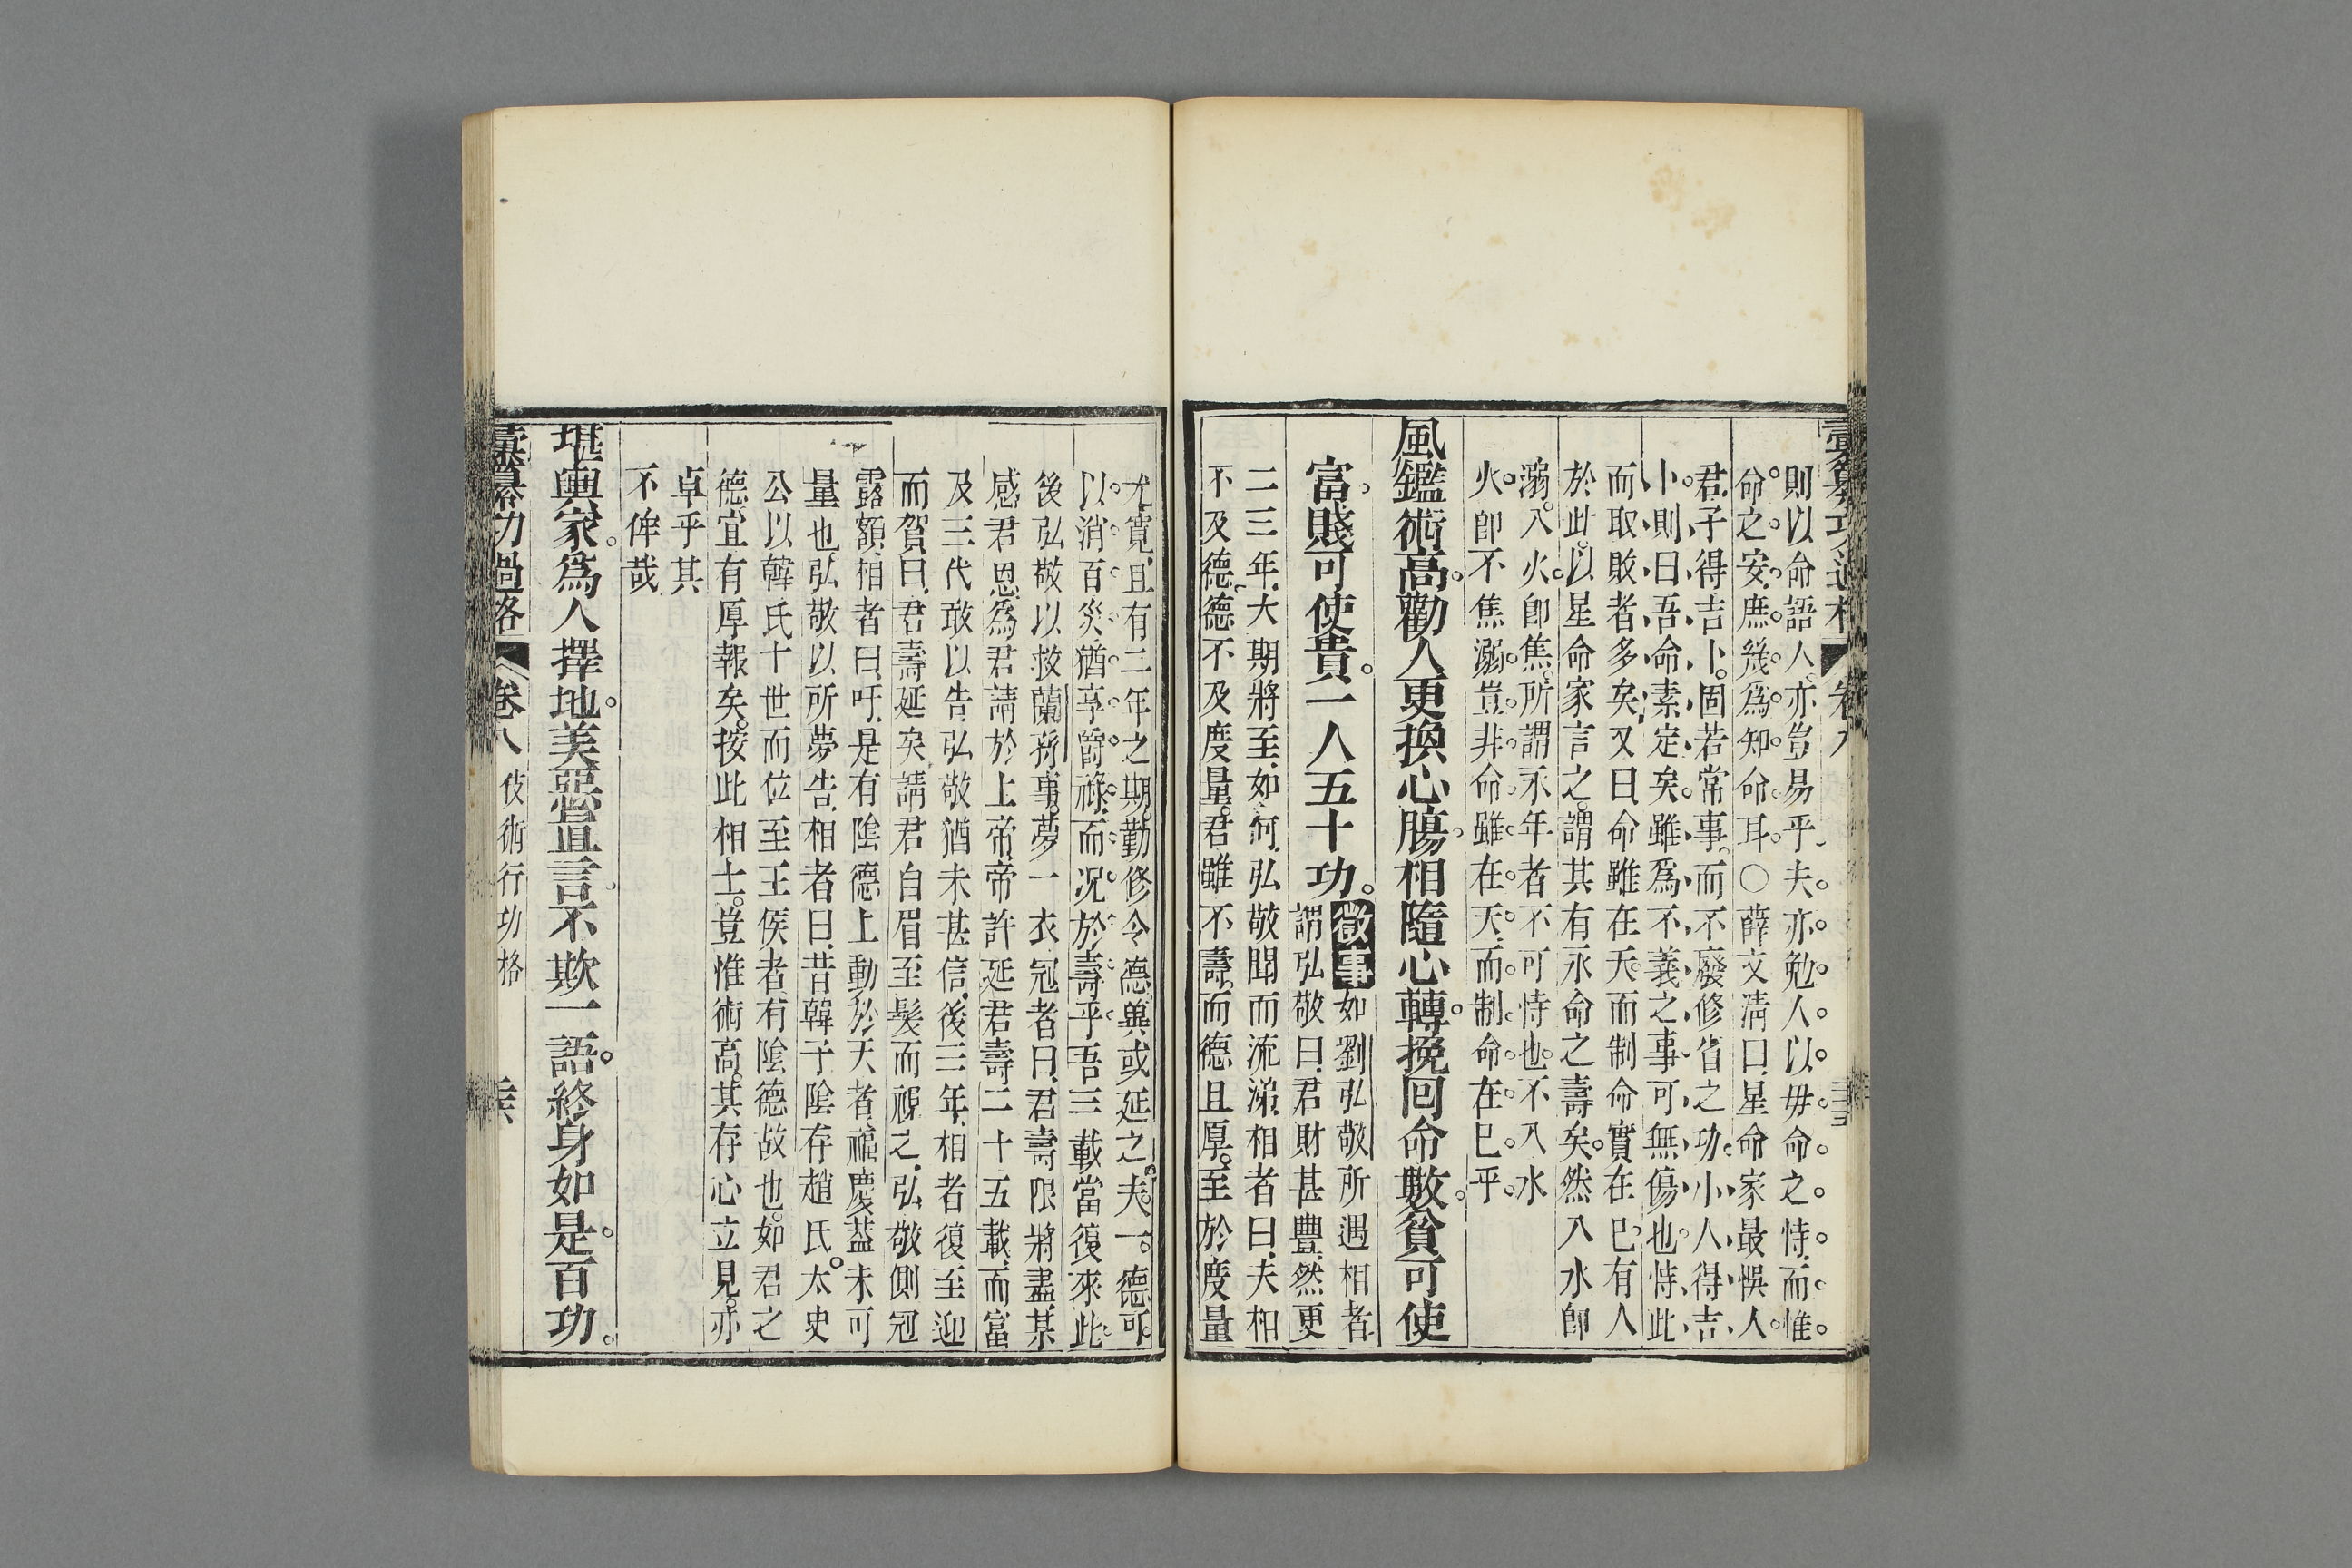 彙纂功過格 卷八
則以命語人亦豈易乎夫亦勉人以毋命之恃而惟
命之安庶幾為知命耳○薛文清曰星命家最悞人
君子得吉卜固若常事而不廢修省之功小人得吉
卜則曰吾命素定矣雖為不義之事可無傷也恃此
而取敗者多矣又曰命雖在天而制命實在巳有人
於此以星命家言之謂其有永命之壽矣然入水即
溺入火即焦所謂永年者不可恃也不入水
火即不焦溺豈非命雖在天而制命在巳乎
風鑑術高勸人更換心腸相隨心轉挽回命數貧可使
富賤可使貴一人五十功
徵事如劉弘敬所遇相者
謂弘敬曰君財甚豐然更
二三年大期將至如何弘敬聞而流涕相者曰夫相
不及德德不及度量君雖不壽而德且厚至於度量
尤寬且有二年之期勤修令德冀或延之夫一德可
以消百災猶享爵祿而况於壽乎吾三載當復來此
後弘敬以救蘭蓀事夢一衣冠者曰君壽限將盡某
感君恩為君請於上帝帝許延君壽二十五載而富
及三代敢以告弘敬猶未甚信後三年相者復至迎
而賀曰君壽延矣請君自眉至髮而視之弘敬側冠
露額相者曰吁是有陰德上動於天者福慶葢未可
量也弘敬以所夢告相者曰昔韓子陰存趙氏太史
公以韓氏十世而位至王侯者有陰德故也如君之
德宜有厚報矣按此相士豈惟術高其存心立見亦
卓乎其
不侔哉
堪輿家為人擇地美惡直言不欺一語終身如是百功
彙纂功過格 卷八 伎術行功格 三六